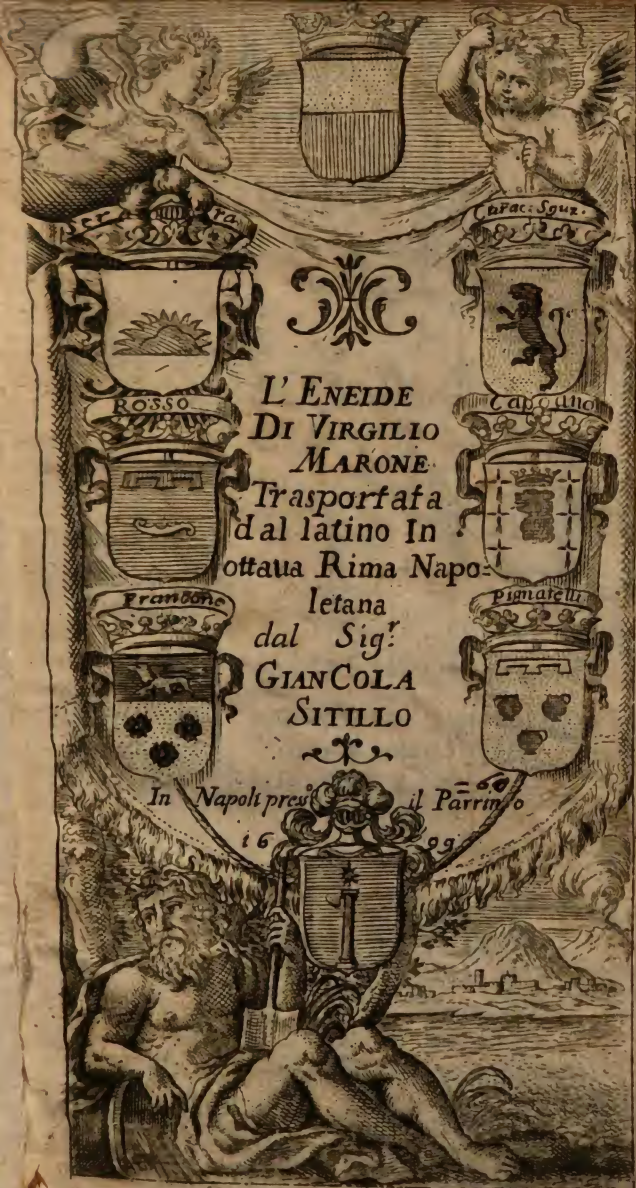 Ser ra
ROSSO
Pignatelli
L' ENEIDE
DI VIRGILIO
MARONE
Trasportata
dal latino In
ottaua Rima Napo=
letana
dal Sig.r
GIANCOLA
SITILLO
In Napoli presso il Parrino
1699